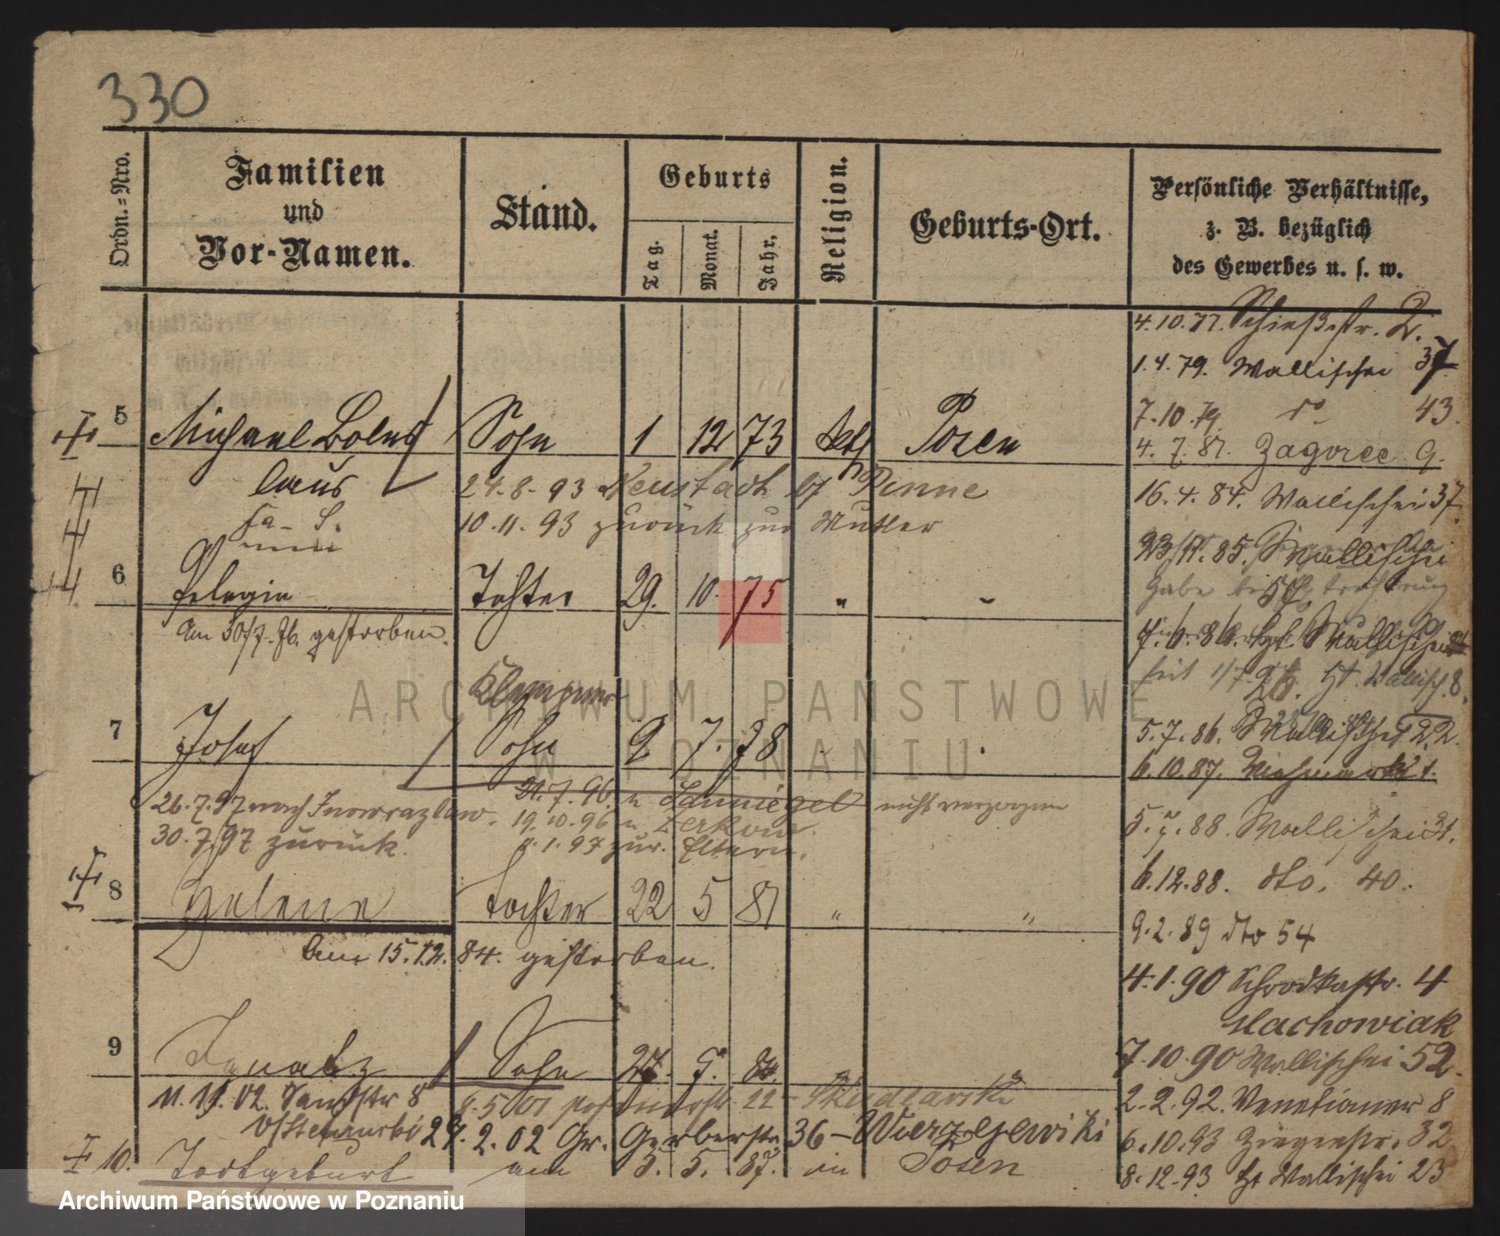 330
Ordn.=Nro.
Familien
und
Vor-Namen.
Stand.
Geburts
Tag.
Monat.
Jahr.
Religion.
Geburts-Ort.
Persönliche Verhältnisse,
z. B. bezüglich
des Gewerbes u. s. w.
4.10.77. Schießstr. 2.
1.4.79. Wallischei 37
7.10.79. do 43.
5 Michael Boles Sohn 1 12 73 kath Posen
4.7.81. Zagorze 9.
laus 24.8.93 Neustadt b/ Pinne
16.4.84. Wallischei 37.
10.11.93 zurück zur Mutter
23/11.85. Wallischei
6 Pelagia Tochter 29. 10. 75 " -
am 30/7.76. gestorben.
seit 1/7 86. Wallisch. 8.
Klempner
7 Josef Sohn 9 7. 78
5.7.86. Wallischei 22.
6.10.87. Viehmarkt
26.7.97 nach Inowrazlaw. 21.7.96. n nicht verzogen
19.10.96 n Zerkow.
30.7.97 zurück. 9.1.97 zur. Eltern.
5.7.88. Wallischei
8 Helene Tochter 22 5 81 " "
6.12.88. dto. 40.
9.2.89 dto 54
am 15.12.84. gestorben.
4.1.90 Schrodkastr. 4
Machowiak
9 Ignatz Sohn 27. 7. 84.
7.10.90 Wallischei 52.
11.11.02. Sandstr 8
2.2.92. Venetianer 8
24.2.02 Gr. Gerberstr 36 - Wierzejewicki
6.10.93 Ziegenstr. 32
10. Todtgeburt am 3. 5. 87. in Posen
8.12.93 Wallischei 23
ARCHIWUM PAŃSTWOWE
W POZNANIU
Archiwum Państwowe w Poznaniu